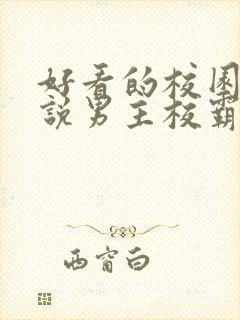 好看的校园
说男主校霸
西窗白